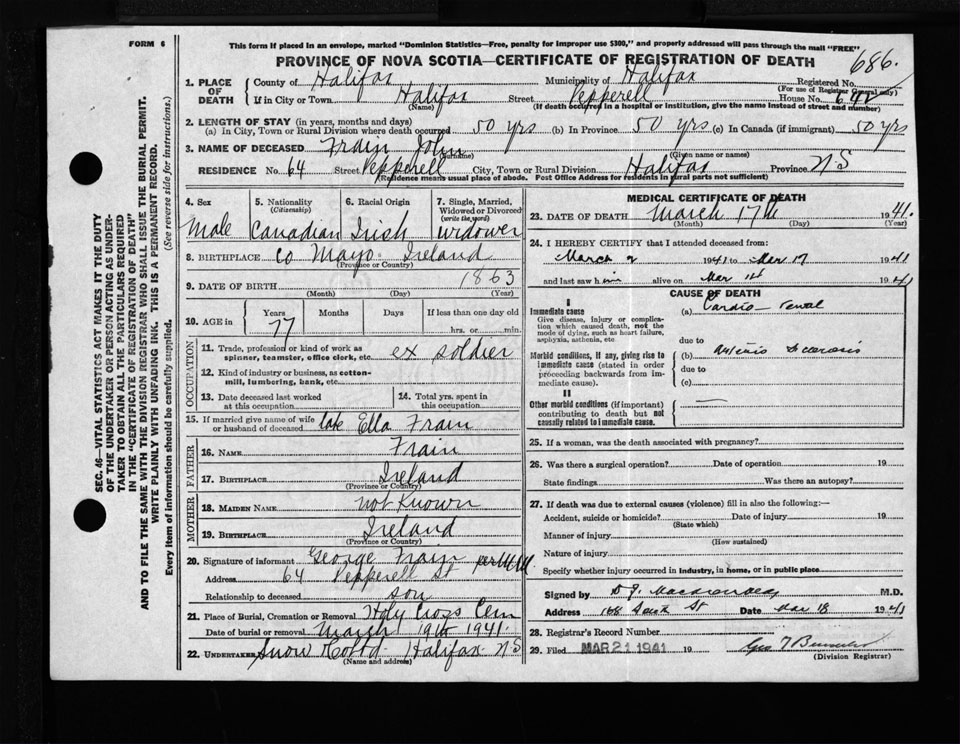 FORM 6
This form if placed in an envelope, marked "Dominion Statistics—Free, penalty for improper use $300," and properly addressed will pass through the mail "FREE"
PROVINCE OF NOVA SCOTIA—CERTIFICATE OF REGISTRATION OF DEATH
686.
1. PLACE OF DEATH
County of Halifax Municipality of Halifax Registered No.
(For use of Registrar General only)
If in City or Town Halifax Street Pepperell House No. 64
(Name) (If death occurred in a hospital or institution, give the name instead of street and number)
2. LENGTH OF STAY (in years, months and days)
(a) In City, Town or Rural Division where death occurred 50 yrs (b) In Province 50 yrs (c) In Canada (if immigrant) 50 yrs
3. NAME OF DECEASED Frain John
(Surname) (Given name or names)
RESIDENCE No. 64 Street Pepperell City, Town or Rural Division Halifax Province N S
(Residence means usual place of abode. Post Office Address for residents in rural parts not sufficient)
4. Sex
Male
5. Nationality
(Citizenship)
Canadian
6. Racial Origin
Irish
7. Single, Married, Widowed or Divorced
(write the word)
widower
8. BIRTHPLACE Co Mayo Ireland
(Province or Country)
9. DATE OF BIRTH 1863
(Month) (Day) (Year)
10. AGE in
Years Months Days If less than one day old
77 hrs. or min.
OCCUPATION
11. Trade, profession or kind of work as spinner, teamster, office clerk, etc. ex soldier
12. Kind of industry or business, as cotton-mill, lumbering, bank, etc.
13. Date deceased last worked at this occupation
14. Total yrs. spent in this occupation
15. If married give name of wife or husband of deceased late Ella Frain
FATHER
16. NAME Frain
17. BIRTHPLACE Ireland
(Province or Country)
MOTHER
18. MAIDEN NAME not Known
19. BIRTHPLACE Ireland
(Province or Country)
20. Signature of informant George Frain per
Address 64 Pepperell St
Relationship to deceased son
21. Place of Burial, Cremation or Removal Holy Cross Cem
Date of burial or removal March 19th 1941.
22. UNDERTAKER Snow Co Ltd Halifax N S
(Name and address)
MEDICAL CERTIFICATE OF DEATH
23. DATE OF DEATH March 17th 1941.
(Month) (Day) (Year)
24. I HEREBY CERTIFY that I attended deceased from:
March 2 1941 to Mar 17 1941
and last saw him alive on Mar 1941
CAUSE OF DEATH
I
Immediate cause
Give disease, injury or complication which caused death, not the mode of dying, such as heart failure, asphyxia, asthenia, etc.
(a) Cardio-renal
due to
Morbid conditions, if any, giving rise to immediate cause (stated in order proceeding backwards from immediate cause).
(b) Arterio Sclerosis
due to
(c)
II
Other morbid conditions (if important) contributing to death but not causally related to immediate cause.
25. If a woman, was the death associated with pregnancy?
26. Was there a surgical operation? Date of operation 19
State findings Was there an autopsy?
27. If death was due to external causes (violence) fill in also the following:—
Accident, suicide or homicide? Date of injury 19
(State which)
Manner of injury
(How sustained)
Nature of injury
Specify whether injury occurred in industry, in home, or in public place
Signed by M.D.
Address 168 South St Date Mar 18 1941
28. Registrar's Record Number
29. Filed MAR 21 1941 19
(Division Registrar)
SEC. 46—VITAL STATISTICS ACT MAKES IT THE DUTY OF THE UNDERTAKER OR PERSON ACTING AS UNDERTAKER TO OBTAIN ALL THE PARTICULARS REQUIRED IN THE "CERTIFICATE OF REGISTRATION OF DEATH" AND TO FILE THE SAME WITH THE DIVISION REGISTRAR WHO SHALL ISSUE THE BURIAL PERMIT.
WRITE PLAINLY WITH UNFADING INK. THIS IS A PERMANENT RECORD.
Every item of information should be carefully supplied. (See reverse side for instructions.)